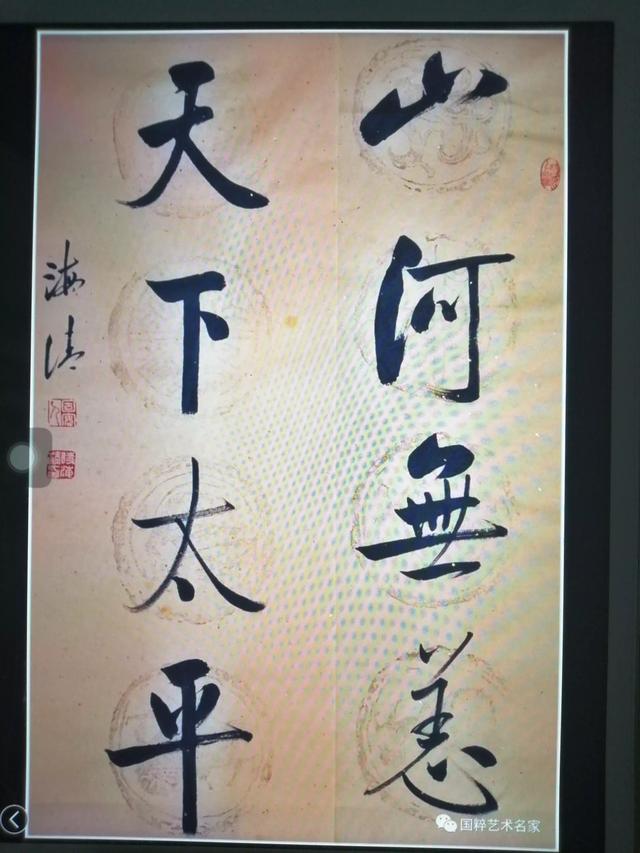 山河無恙
天下太平
海清
国粹艺术名家